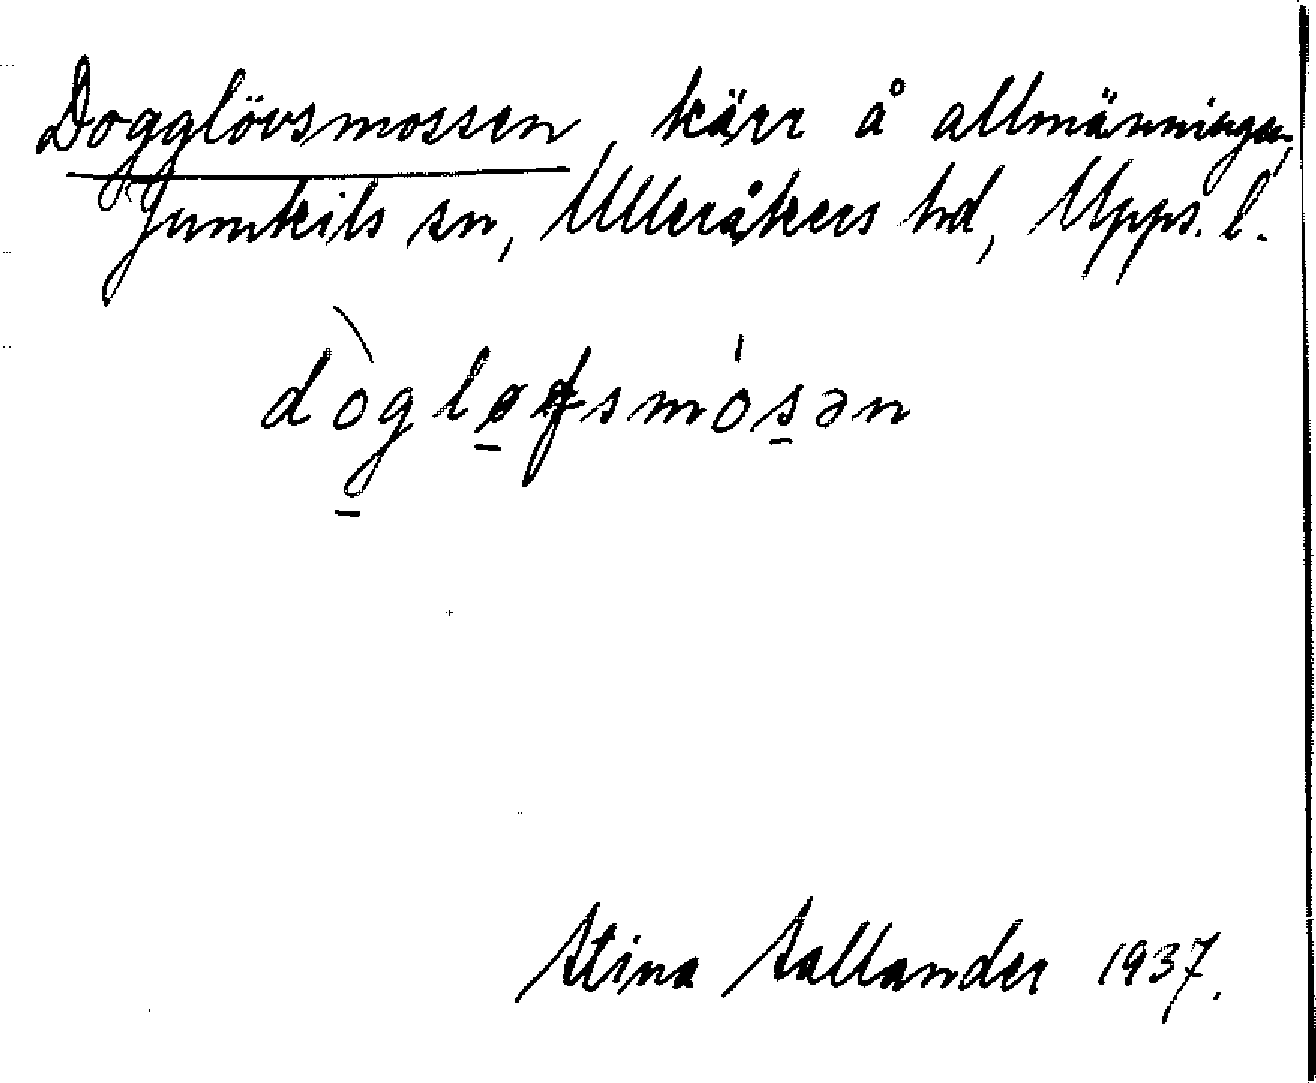 Dogglövsmossen, kärr å allmänningen,
Jumkils sn, Ulleråkers hd, Upps. l.
dògḻø̱fsmós̱ən
Stina Sallander 1937.